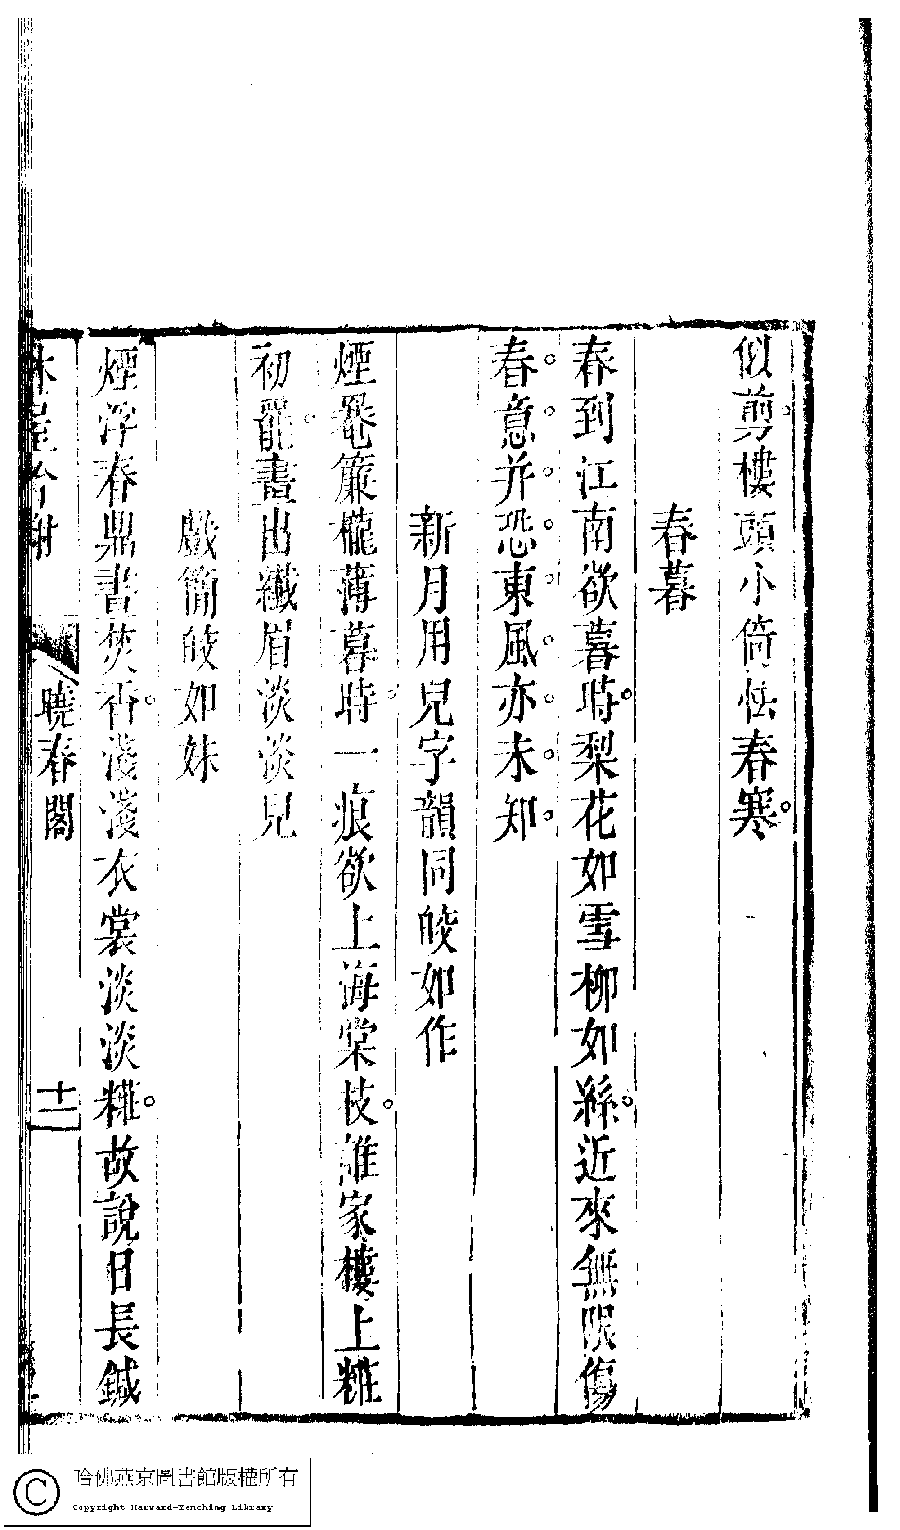 似剪樓頭小倚怯春寒
春暮
春到江南欲暮時梨花如雪柳如絲近來無限傷
春意并恐東風亦未知
新月用兒字韻同皎如作
煙罨簾櫳薄暮時一痕欲上海棠枝誰家樓上糚
初罷畫出纖眉淡淡兒
戲簡皎如妹
煙浮春鼎晝焚香淺淺衣裳淡淡糚故說日長鍼
林屋吟榭 曉春閣 十二
哈佛燕京圖書館版權所有
Copyright Harvard-Yenching Library